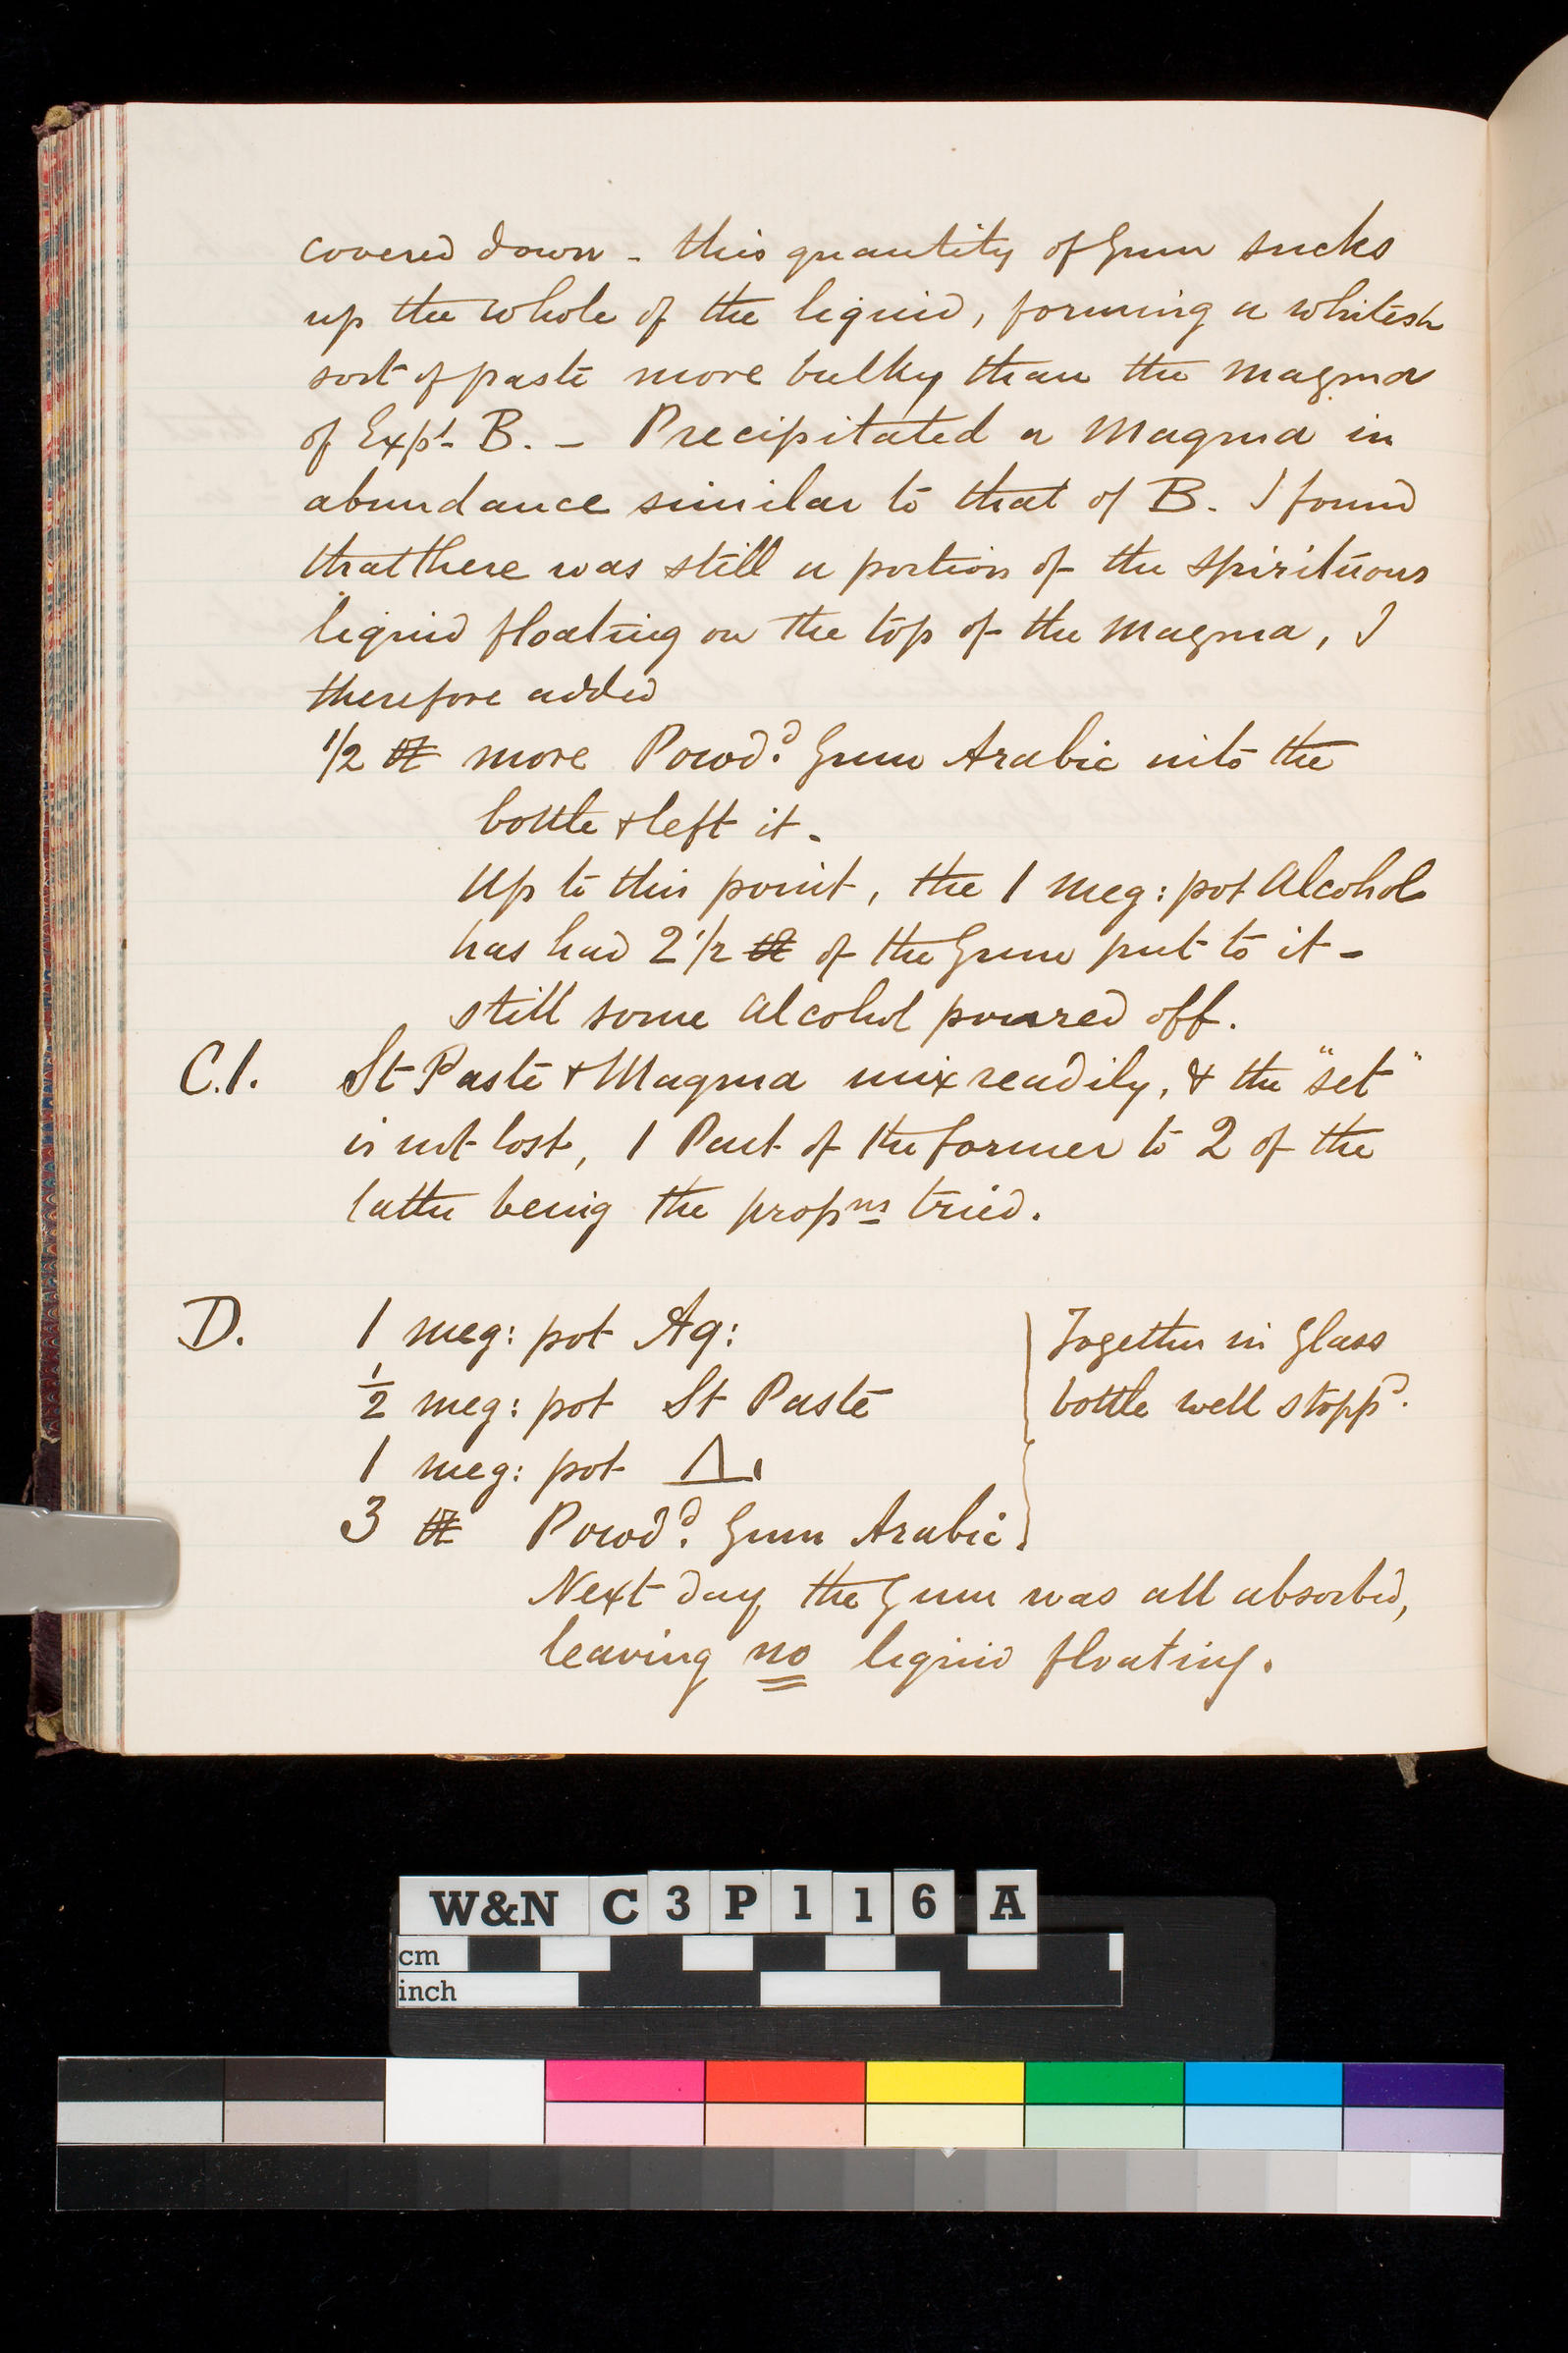 covered down - this quantity of Gum sucks
up the whole of the liquid, forming a whitish
sort of paste more bulky than the magma
of Expt. B. – Precipitated a Magma in
abundance similar to that of B. I found
that there was still a portion of the spirituous
liquid floating on the top of the magma, I
therefore added
1/2 ℔ more Powdd. Gum Arabic into the
bottle & left it -
Up to this point, the 1 meg: pot Alcohol
has had 2 1/2 ℔ of the Gum put to it -
still some Alcohol poured off.
C.1. St Paste & Magma mix readily, & the "set"
is not lost, 1 Part of the former to 2 of the
latter being the propns tried.
D. 1 meg: pot Aq: Together in Glass
1/2 meg: pot St Paste bottle well stoppd.
1 meg: pot
3 ℔ Powdd. Gum Arabic.
Next day the Gum was all absorbed,
leaving no liquid floating.
W&N C3P116 A
cm
inch